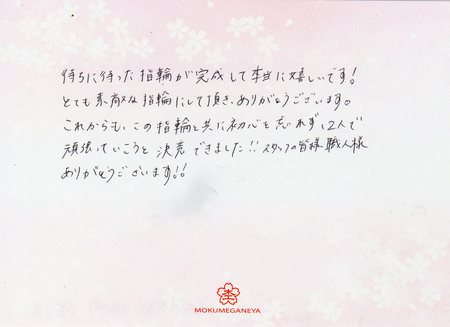 待ちに待った指輪が完成して本当に嬉しいです!
とても素敵な指輪にして頂き、ありがとうございます。
これからも、この指輪と共に初心を忘れず、2人で
頑張っていこうと決意できました!!スタッフの皆様、職人様
ありがとうございます!!
MOKUMEGANEYA